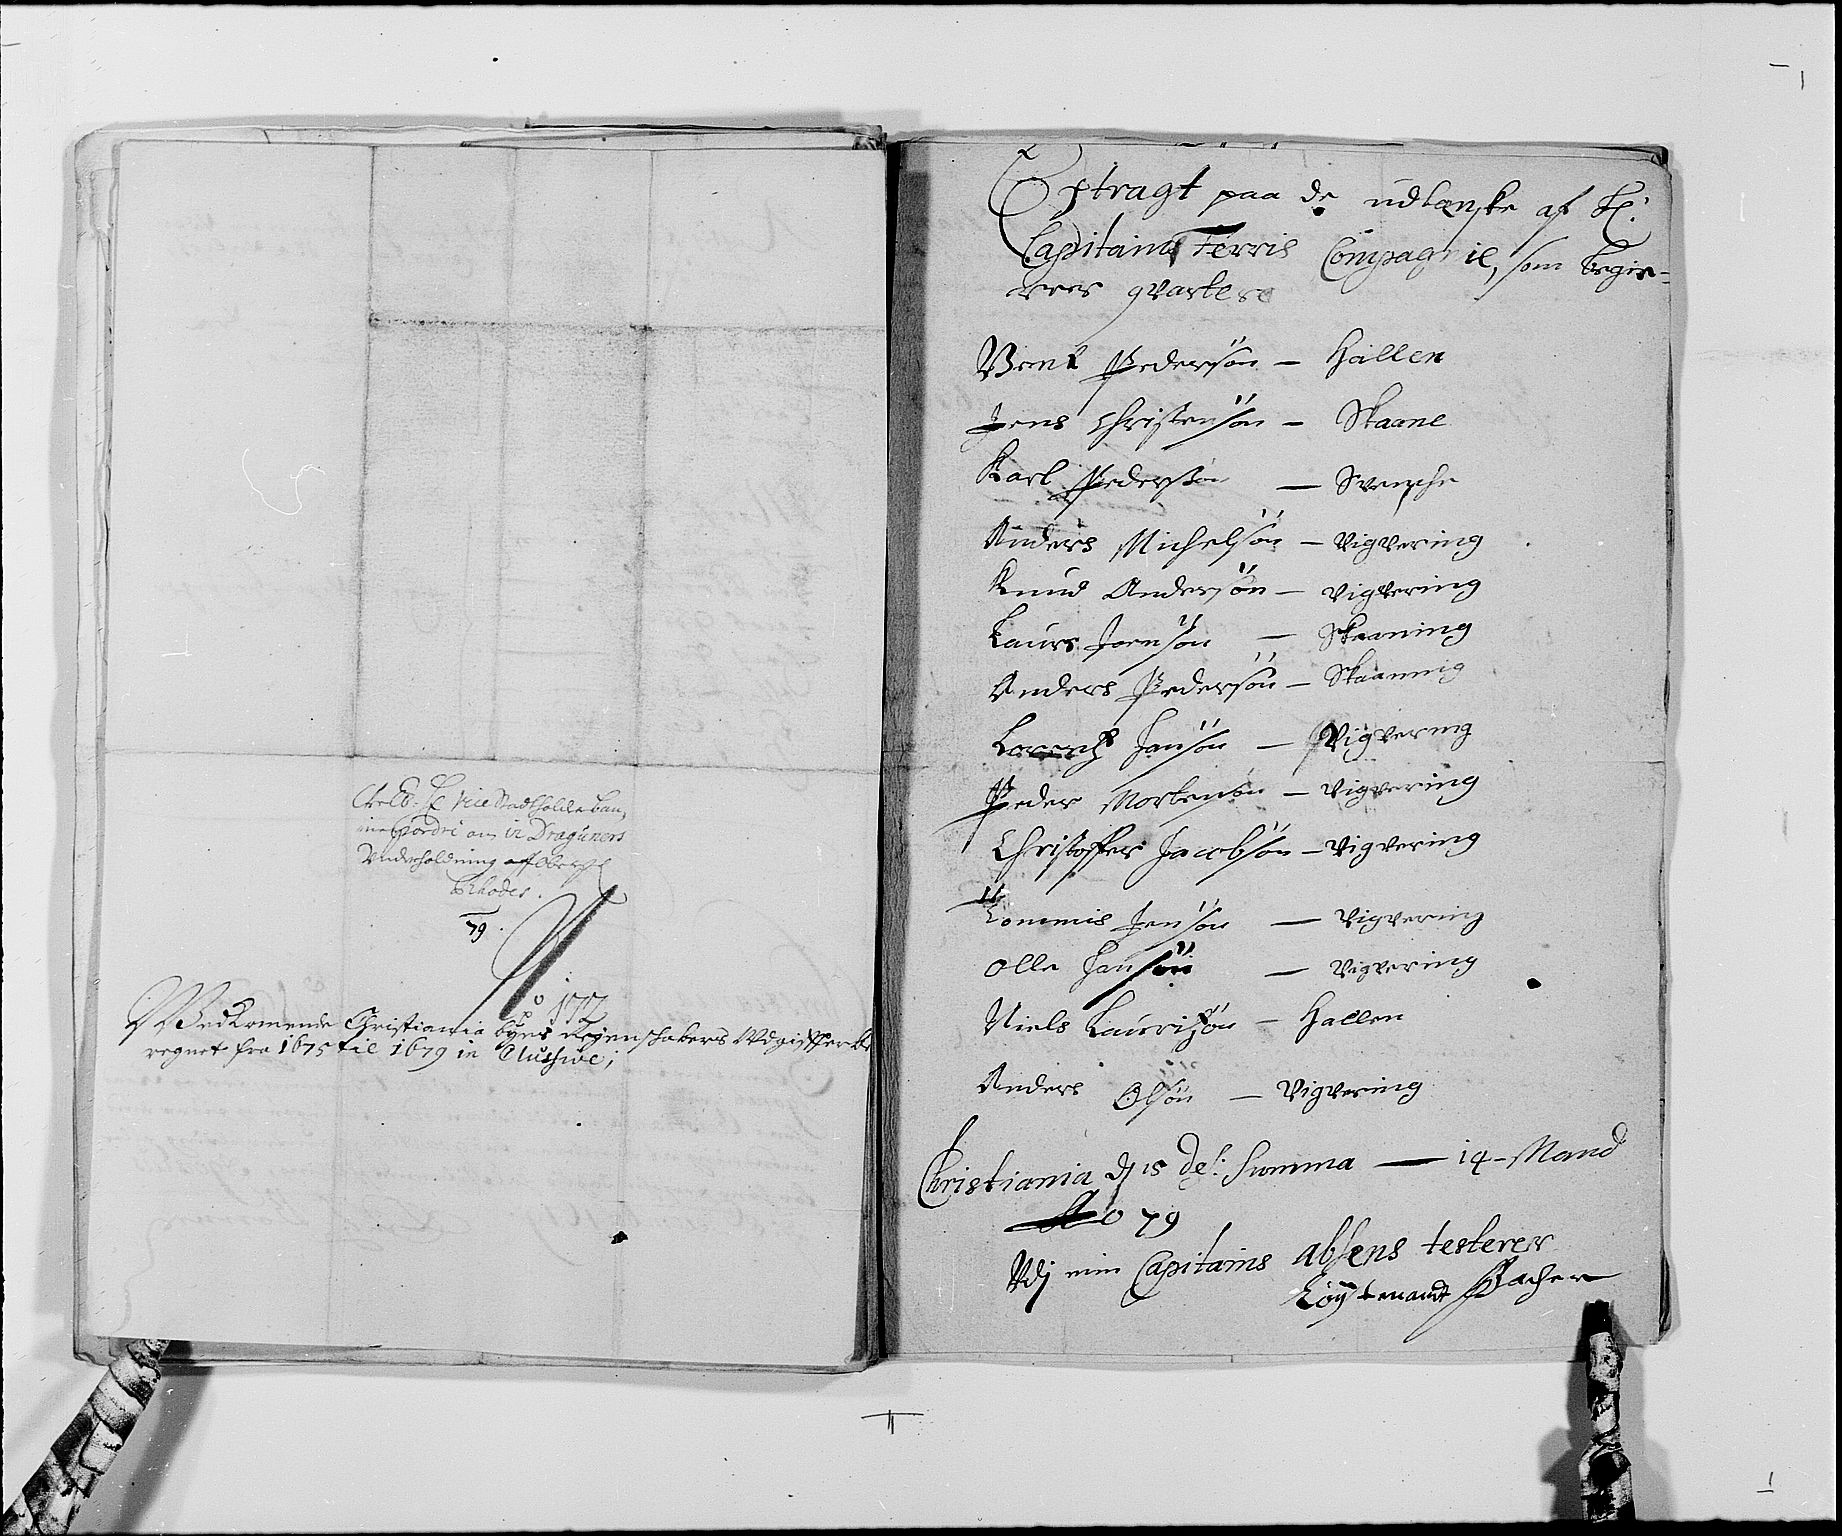 Vice Stadtholder
ordre om Draguners
Underholdning aff Oberst
Rhodes.
79.
Vedkomende Christiania byes Regenskabers
regnet fra 1675 til 1679 in Clusive;
Extragt paa de udlanske af H:
Capitains Ferris Compagnie, som begie-
rer qvarteer
Bent Pedersön – Hallen
Jens Christensön – Skaane
Karl Pedersön – Svensche
Anders Michelsön – Vigvering
Knud Andersön – Vigvering
Laurs Joensön – Skaaning
Anders Pedersön – Skaaning
Hansön – Vigvering
Peder Mortensön – Vigvering
Christoffer Jacobsön – Vigvering
Tommis Jensön – Vigvering
Olle Hansön – Vigvering
Niels Lauritzön – Hallen
Anders Olsön – Vigvering
Christiania dj 15 Summa – 14 – Mand
Ao 79
Udj min Capitains absens testerer
Löijtenandt